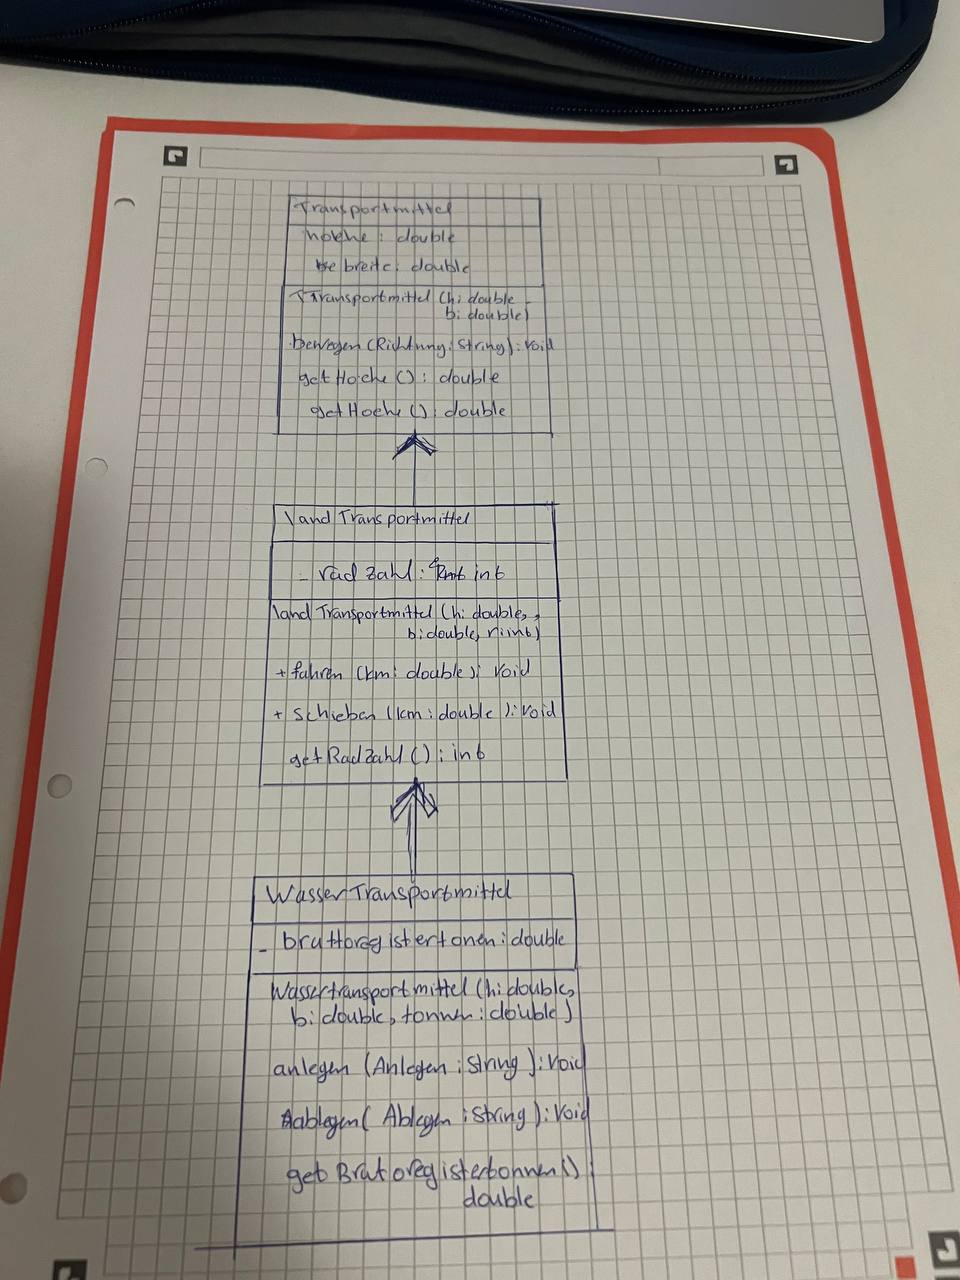 Transportmittel
hoehe : double
breite : double
Transportmittel (h: double
b: double)
bewegen (Richtung: String): void
getHoehe () : double
getHoehe () : double
landTransportmittel
- radZahl : int
landTransportmittel (h: double,
b: double, r: int)
+ fahren (km: double): void
+ schieben (km: double): void
getRadZahl () : int
WasserTransportmittel
- bruttoregistertonen : double
Wassertransportmittel (h: double,
b: double, tonnen : double)
anlegen (Anlegen : String) : void
ablegen( Ablegen : String) : void
getBrutoregistertonnen()
double